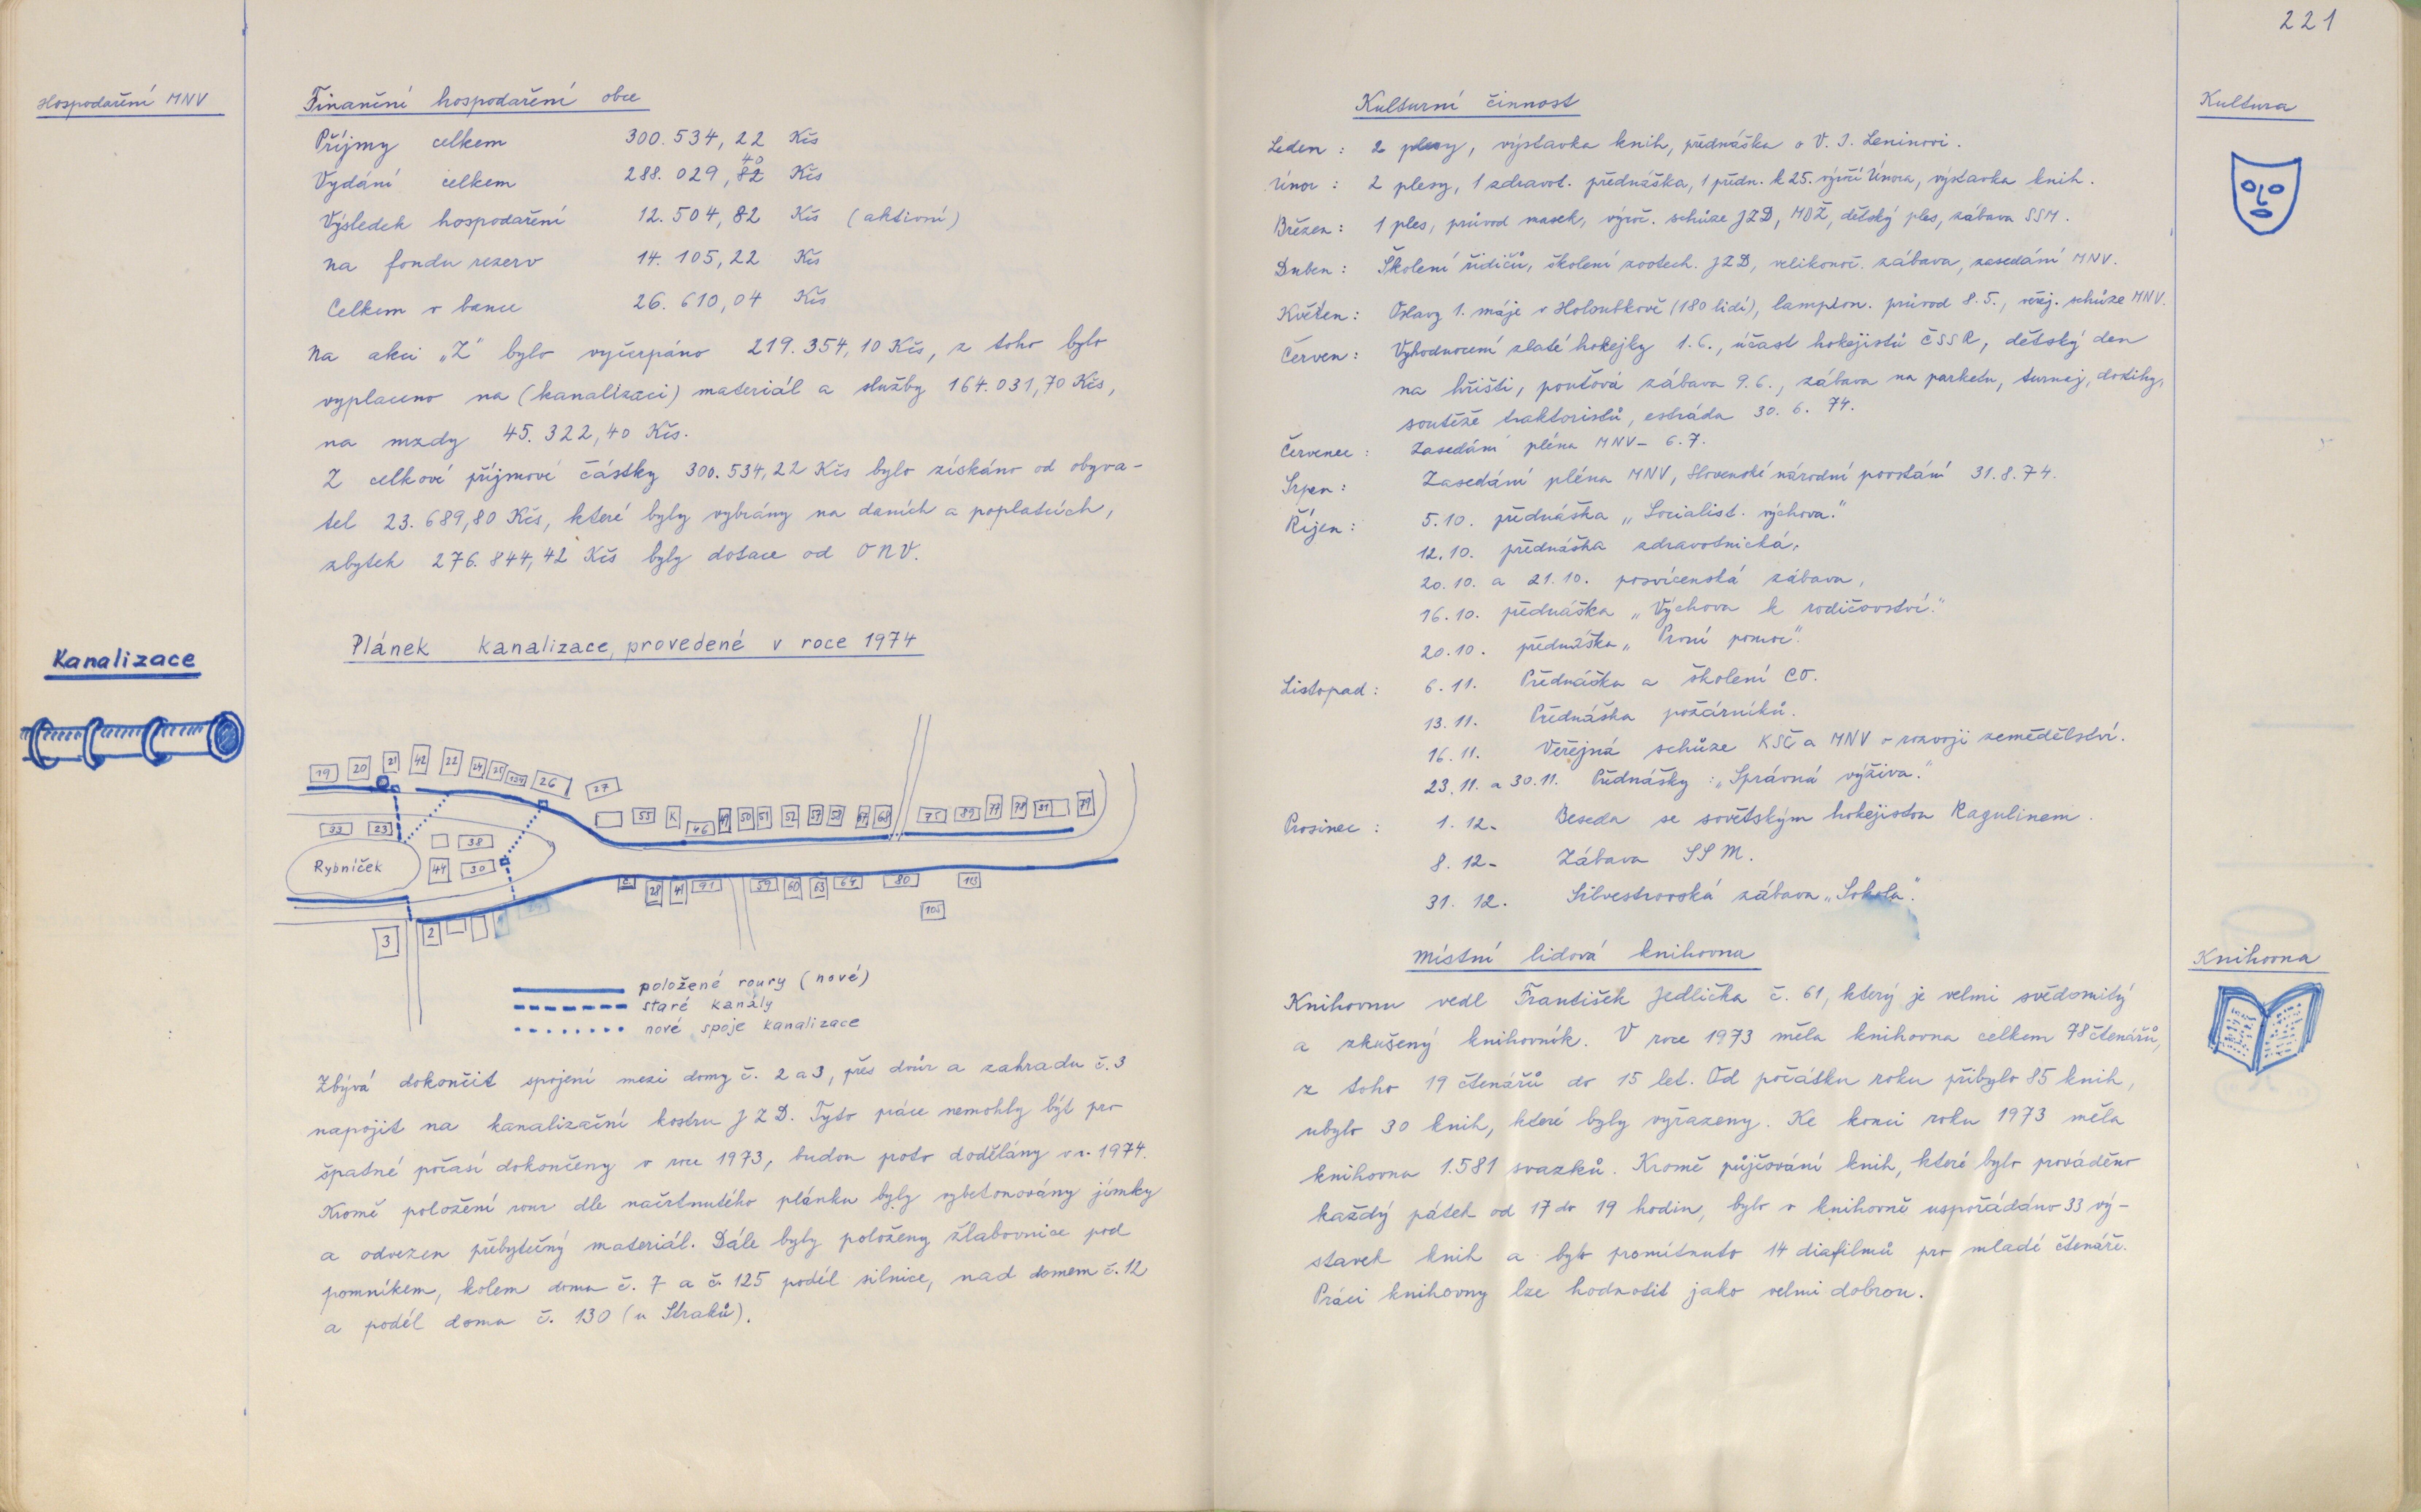 Hospodaření MNV
Finanční hospodaření obce
Příjmy celkem 300.534,22 Kčs
Vydání celkem 288.029,82 Kčs
40
Výsledek hospodaření 12.504,82 Kčs (aktivní)
Na fondu rezerv 14.105,22 Kčs
Celkem v bance 26.610,04 Kčs
Na akci „Z" bylo vyčerpáno 219.354,10 Kčs, z toho bylo
vyplaceno na (kanalizaci) materiál a služby 164.031,70 Kčs,
na mzdy 45.322,40 Kčs.
Z celkové příjmové částky 300.534,22 Kčs bylo získáno od obyva-
tel 23.689,80 Kčs, které byly vybrány na daních a poplatcích,
zbytek 276.844,42 Kčs byly dotace od ONV.
Kanalizace
Plánek kanalizace, provedené v roce 1974
19 20 21 42 22 24 25 124 26 27
55 K 46 49 50 51 52 57 58 67 68 75 89 77 78 81 79
33 23 38
Rybníček 44 30
28 41 91 59 60 63 64 80 113
105
3 2
položené roury (nové)
staré kanály
nové spoje kanalizace
Zbývá dokončit spojení mezi domy č. 2 a 3, přes dvůr a zahradu č. 3
napojit na kanalizační kostru JZD. Tyto práce nemohly být pro
špatné počasí dokončeny v roce 1973, budou proto dodělány v r. 1974.
Kromě položení rour dle načrtnutého plánku byly vybetonovány jímky
a odvezen přebytečný materiál. Dále byly položeny žlabovnice pod
pomníkem, kolem domu č. 7 a č. 125 podél silnice, nad domem č. 12
a podél domu č. 130 (u Straků).
221
Kultura
Kulturní činnost
Leden : 2 plesy, výstavka knih, přednáška o V. I. Leninovi.
Únor : 2 plesy, 1 zdravot. přednáška, 1 předn. k 25. výročí Února, výstavka knih.
Březen : 1 ples, průvod masek, výroč. schůze JZD, MDŽ, dětský ples, zábava SSM.
Duben : Školení řidičů, školení zootech. JZD, velikonoč. zábava, zasedání MNV.
Květen : Oslavy 1. máje v Holoubkově (180 lidí), lampion. průvod 8.5., veřej. schůze MNV.
Červen : Vyhodnocení zlaté hokejky 1.6., účast hokejistů ČSSR, dětský den
na hřišti, pouťová zábava 9.6., zábava na parketu, turnaj, dožínky,
soutěže traktoristů, estráda 30. 6. 74.
Červenec : Zasedání pléna MNV – 6.7.
Srpen : Zasedání pléna MNV, Slovenské národní povstání 31.8.74.
Říjen : 5.10. přednáška „Socialist. výchova."
12.10. přednáška zdravotnická,
20.10. a 21.10. posvícenská zábava,
16.10. přednáška „Výchova k rodičovství."
20.10. přednáška „První pomoc".
Listopad : 6.11. Přednáška a školení CO.
13.11. Přednáška požárníků.
16.11. Veřejná schůze KSČ a MNV o rozvoji zemědělství.
23.11. a 30.11. Přednášky : „Správná výživa."
Prosinec : 1. 12. Beseda se sovětským hokejistou Ragulinem.
8. 12. Zábava SSM.
31. 12. Silvestrovská zábava „Sokola".
Knihovna
Místní lidová knihovna
Knihovnu vedl František Jedlička č. 61, který je velmi svědomitý
a zkušený knihovník. V roce 1973 měla knihovna celkem 78 čtenářů,
z toho 19 čtenářů do 15 let. Od počátku roku přibylo 85 knih,
ubylo 30 knih, které byly vyřazeny. Ke konci roku 1973 měla
knihovna 1.581 svazků. Kromě půjčování knih, které bylo prováděno
každý pátek od 17 do 19 hodin, bylo v knihovně uspořádáno 33 vý-
stavek knih a bylo promítnuto 14 diafilmů pro mladé čtenáře.
Práci knihovny lze hodnotit jako velmi dobrou.